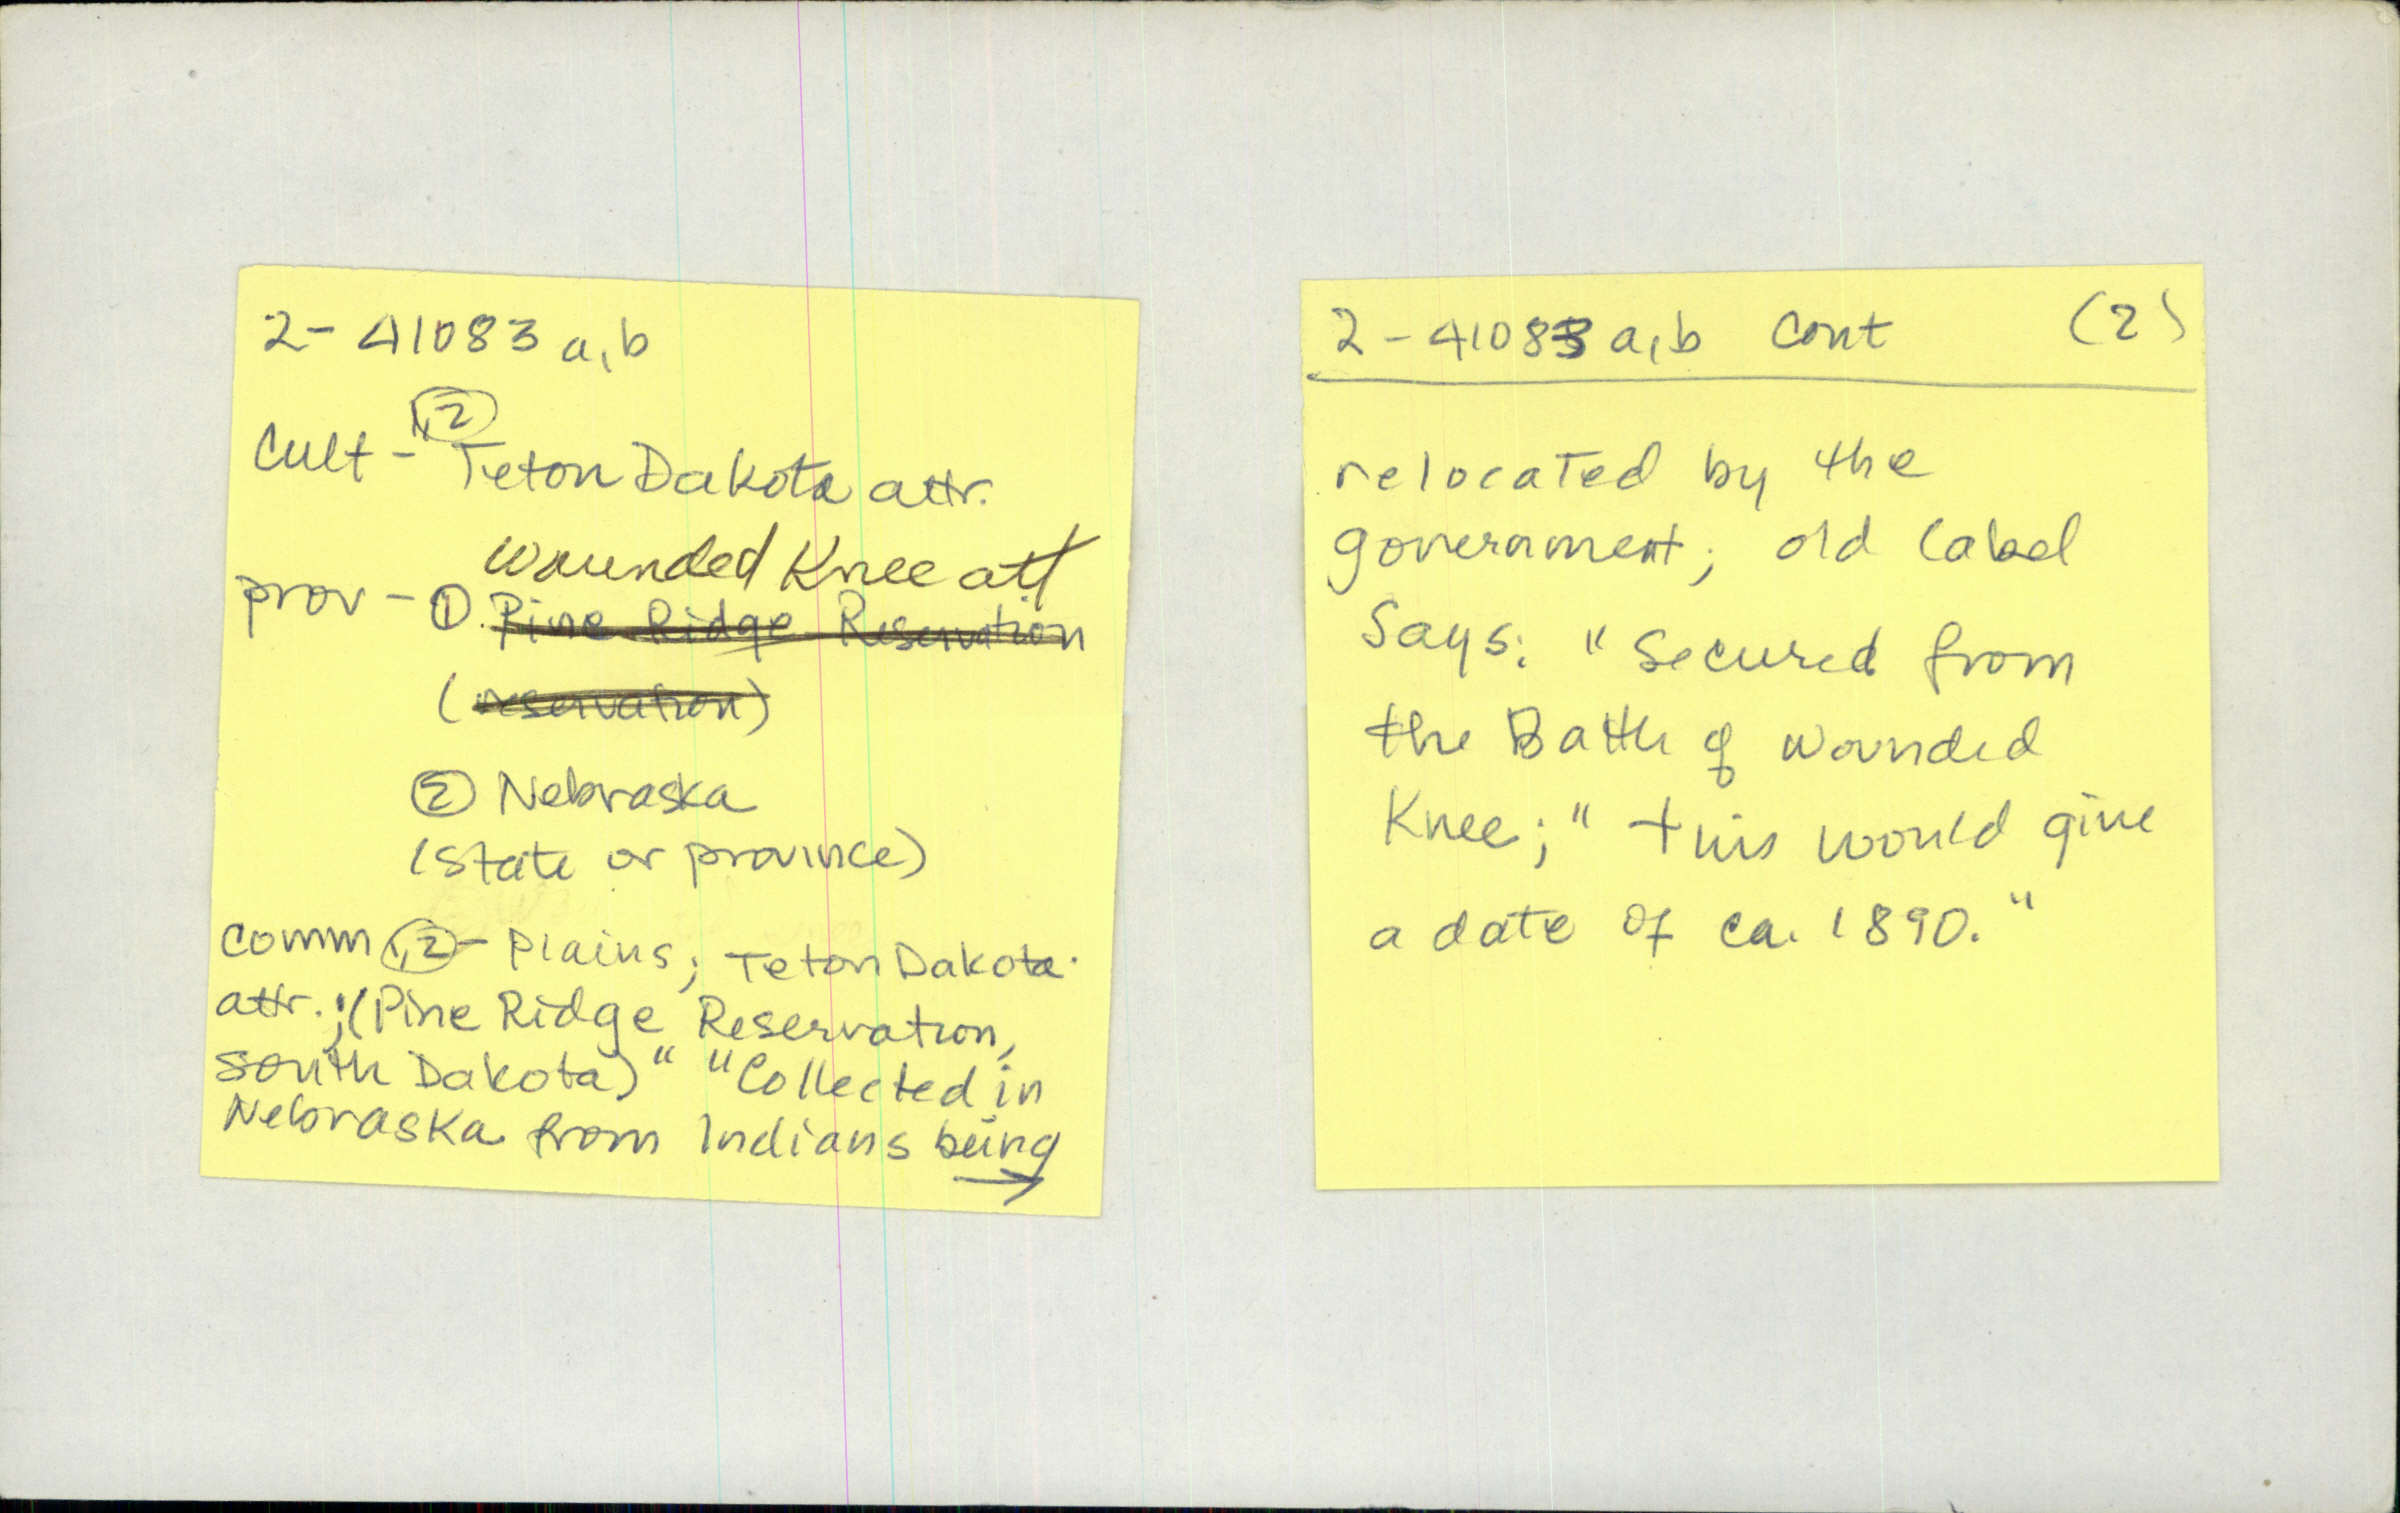 2-41083 a,b
1,2
Cult - Teton Dakota attr.
Wounded Knee att
prov - ① Pine Ridge Reservation
(reservation)
② Nebraska
(state or province)
comm 1,2 - Plains; Teton Dakota
attr.; (Pine Ridge Reservation,
South Dakota)" "Collected in
Nebraska from Indians being
→
2-41083 a,b Cont (2)
relocated by the
government; old label
Says: "Secured from
the Battle of Wounded
Knee;" this would give
a date of ca. 1890."